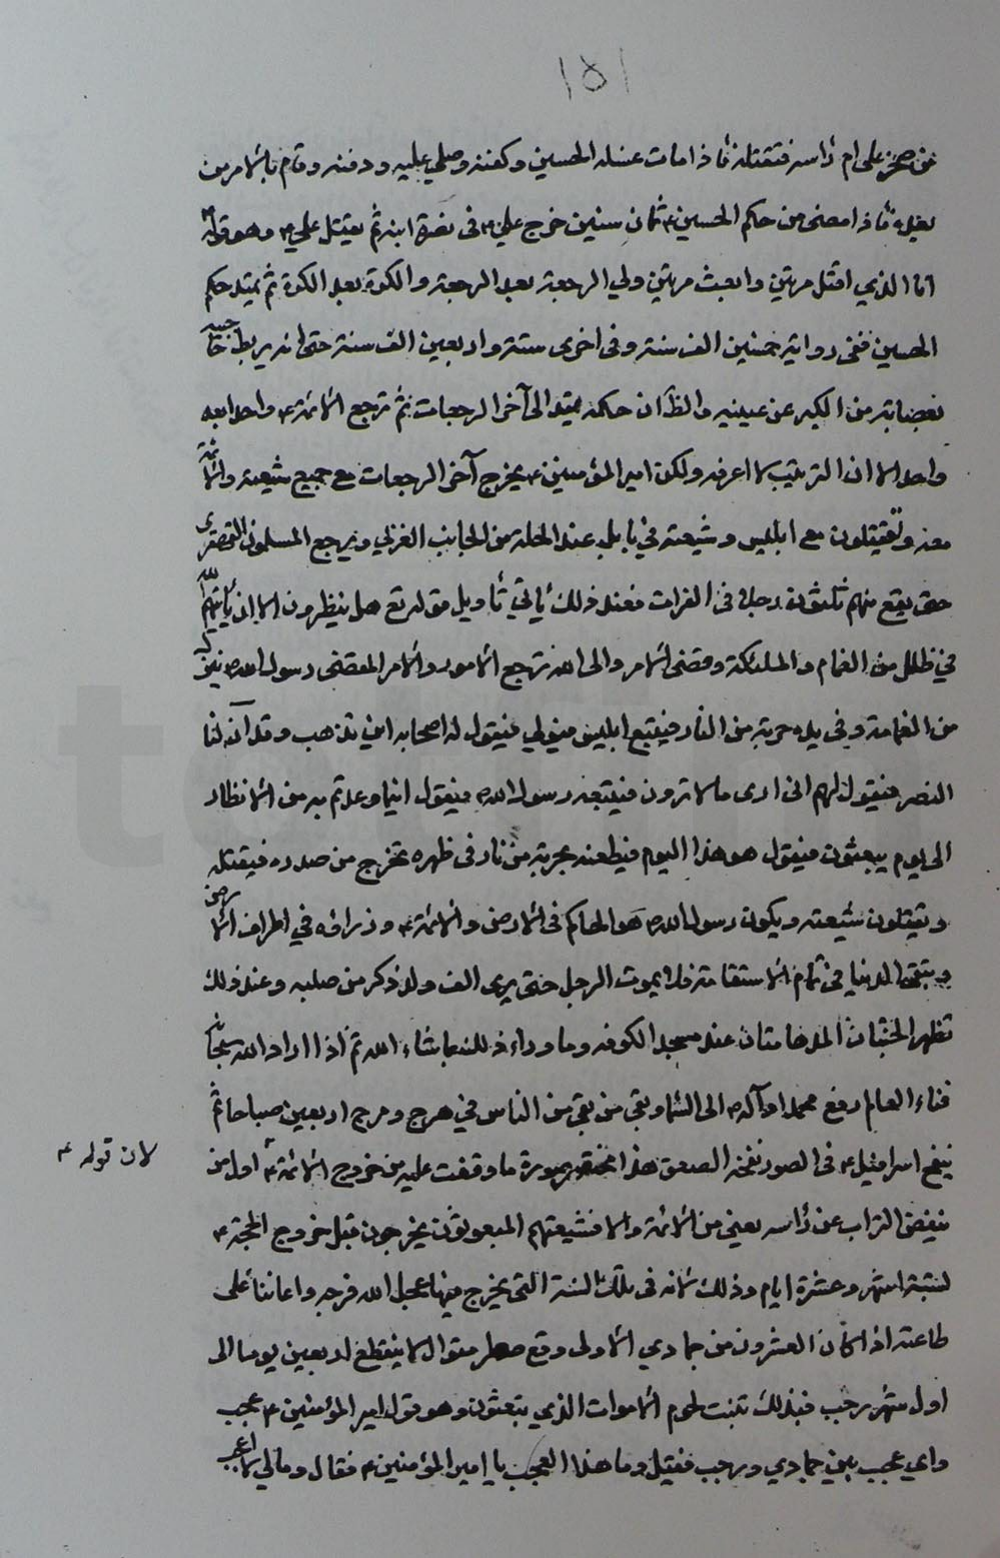 ١٥١
من صخر على ام رأسه فتقتله فاذا مات غسله الحسين وكفنه وصلى عليه ودفنه وقام بالامر من
بعده فاذا مضى من حكم الحسين ع ثمان سنين خرج علي ع في نصرة ابنه ثم يقتل علي ع وهو قوله ع
انا الذي اقتل مرتين وابعث مرتين ولي الرجعة بعد الرجعة والكرة بعد الكرة ثم يمتد حكم
الحسين ففي رواية خمسين الف سنة وفي اخرى ستة واربعين الف سنة حتى انه يربط حاجبيه
بعصابة من الكبر عن عينيه والظ ان حكمه يمتد الى آخر الرجعات ثم ترجع الائمة ع واحدا بعد
واحد الا ان الترتيب لا اعرفه ولكن امير المؤمنين ع يخرج آخر الرجعات مع جميع شيعته والائمة
معه وتقتتلون مع ابليس وشيعته في بابل عند الحلة من الجانب الغربي ويرجع المسلمون القهقرى
حتى يقع منهم ثلثون رجلا في الفرات فعند ذلك يأتي تأويل قوله تع هل ينظرون الا ان يأتيهم الله
في ظلل من الغمام والملئكة وقضي الامر والى الله ترجع الامور والامر المقضي رسول الله ص ينزل
من الغمامة وفي يده حربة من النار فيتبع ابليس فيولي فيقول له اصحابه اين تذهب وقد آن لنا
النصر فيقول لهم اني ارى ما لا ترون فيتبعه رسول الله ص فيقول انما وعدتم به من الانظار
الى يوم يبعثون فيقول هو هذا اليوم فيطعنه بحربة من نار في ظهره تخرج من صدره فيقتله
ويقتلون شيعته ويكون رسول الله ص هو الحاكم في الارض والائمة ع وزراؤه في اطراف الارض
وتبقى الدنيا في تمام الاستقامة فلا يموت الرجل حتى يرى الف ولد ذكر من صلبه وعند ذلك
تظهر الجنتان المدهامتان عند مسجد الكوفة وما وراء ذلك بما شاء الله ثم اذا اراد الله سبحانه
فناء العالم رفع محمدا وآله ص الى السماء وبقي من بقي من الناس في هرج ومرج اربعين صباحا ثم
ينفخ اسرافيل ع في الصور نفخة الصعق هذا مختصر صورة ما وقفت عليه من خروج الائمة ع اول من
لان قوله ع
ينفض التراب عن رأسه يعني من الائمة والا فشيعتهم المبعوثون يخرجون قبل خروج الحجة ع
لستة اشهر وعشرة ايام وذلك لانه في تلك السنة التي يخرج فيها عجل الله فرجه واعاننا على
طاعته اذا كان العشرون من جمادي الاولى وقع مطر متوال لا ينقطع اربعين يوما الى
اول شهر رجب فبذلك تنبت لحوم الاموات الذي يبعثون وهو قول امير المؤمنين ع عجب
واي عجب بين جمادي ورجب فقيل وما هذا العجب يا امير المؤمنين ع فقال ومالي لا اعجب